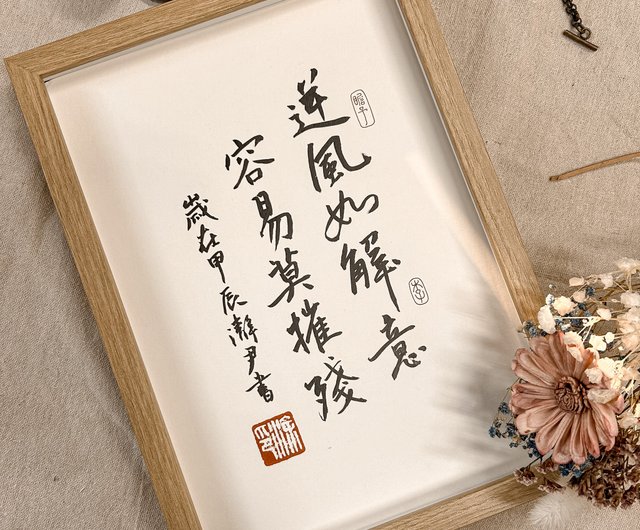 逆風如解意
容易莫摧殘
歲在甲辰瀚尹書